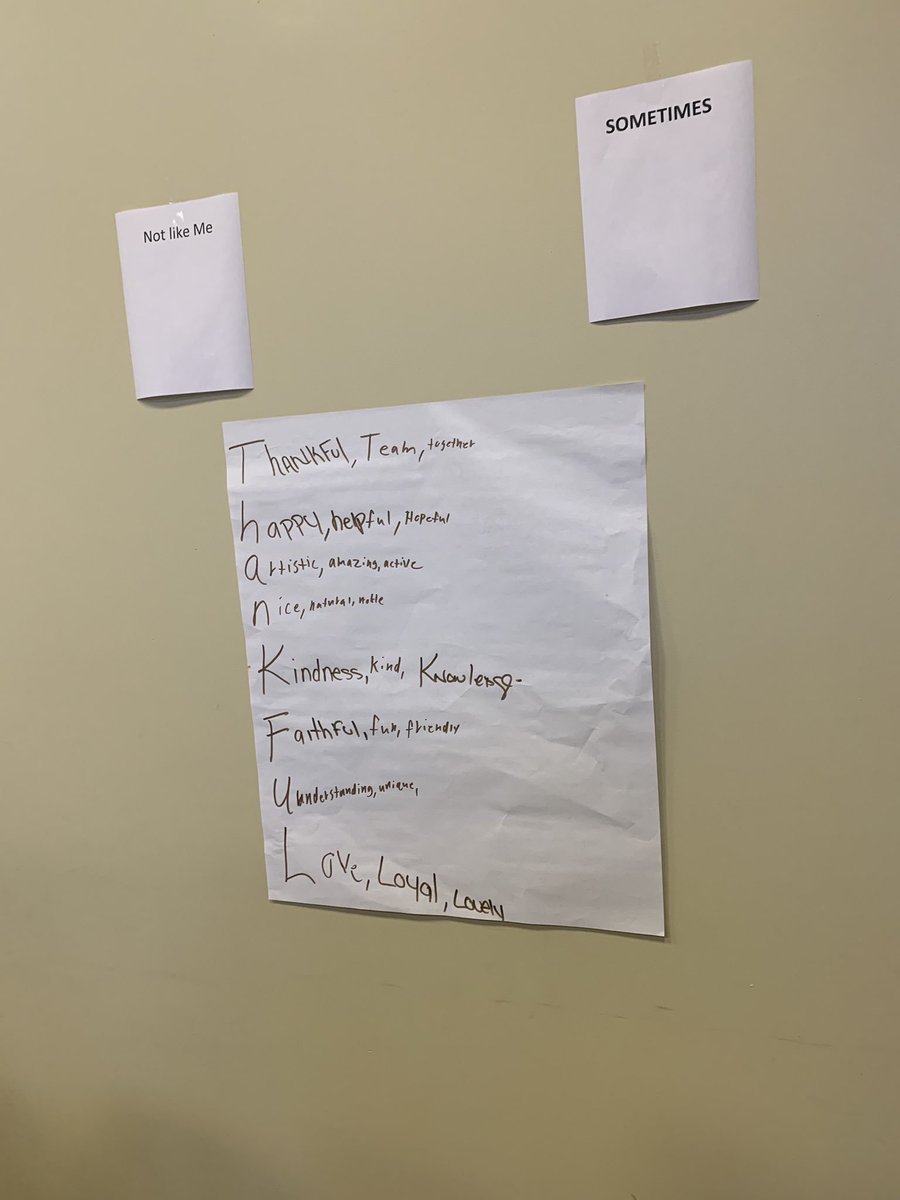 Not like Me
SOMETIMES
THANKFul, Team, together
happy, helpful, Hopeful
artistic, amazing, active
nice, natural, noble
Kindness, kind, Knowledge
Faithful, fun, friendly
Uunderstanding, unique,
Love, Loyal, Lovely